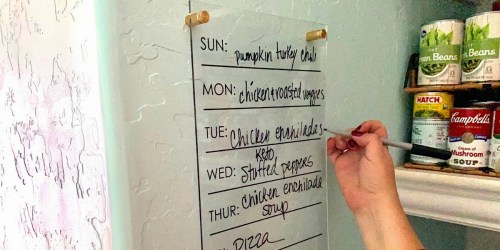 SUN: pumpkin turkey chili
MON: chicken+roasted veggies
TUE: chicken enchiladas
Keto
WED: stuffed peppers
THUR: chicken enchilada
soup
pizza
Green Beans
Beans
HATCH
Campbell's
Cream of
Mushroom
SOUP